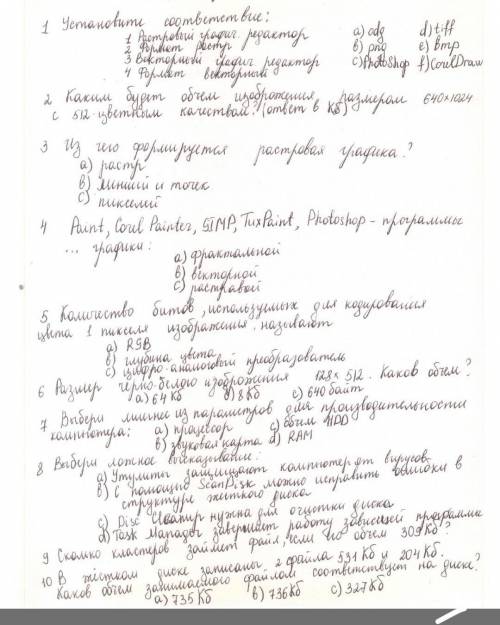 1 Установите соответствие:
1 Растровый график. редактор a) odg d) tiff
2 Формат растр b) png e) bmp
3 Векторный график. редактор c) PhotoShop f) CorelDraw
4 Формат векторный
2 Каким будет объем изображения размером 640×1024
с 512-цветным качеством? (ответ в Кб)
3 Из чего формируется растровая графика?
a) растр
b) линий и точек
c) пикселей
4 Paint, Corel Painter, GIMP, TuxPaint, Photoshop - программы
... графики:
a) фрактальной
b) векторной
c) растравой
5 Количество битов, используемых для кодирования
цвета 1 пикселя изображения, называют
a) RGB
b) глубина цвета
c) цифро-аналоговый преобразователь
6 Размер черно-белого изображения 128×512. Каков объем?
a) 64 Кб b) 8 Кб c) 640 байт
7 Выбери лишнее из параметров для производительности
компьютера: a) процесор c) объем HDD
b) звуковая карта d) RAM
8 Выбери ложное высказывание:
a) Утилиты защищают компьютер от вирусов
b) С помощью ScanDisk можно исправить ошибки в
структуре жёсткого диска
c) Disc Cleanup нужна для очистки диска
d) Task Manager завершает работу зависшей программы
9 Сколько кластеров займёт файл, если его объем 309 Кб?
10 В жёстком диске записаны 2 файла 531 Кб и 204 Кб.
Каков объем занимаемого файлом соответствует на диске?
a) 735 Кб b) 736 Кб c) 327 Кб